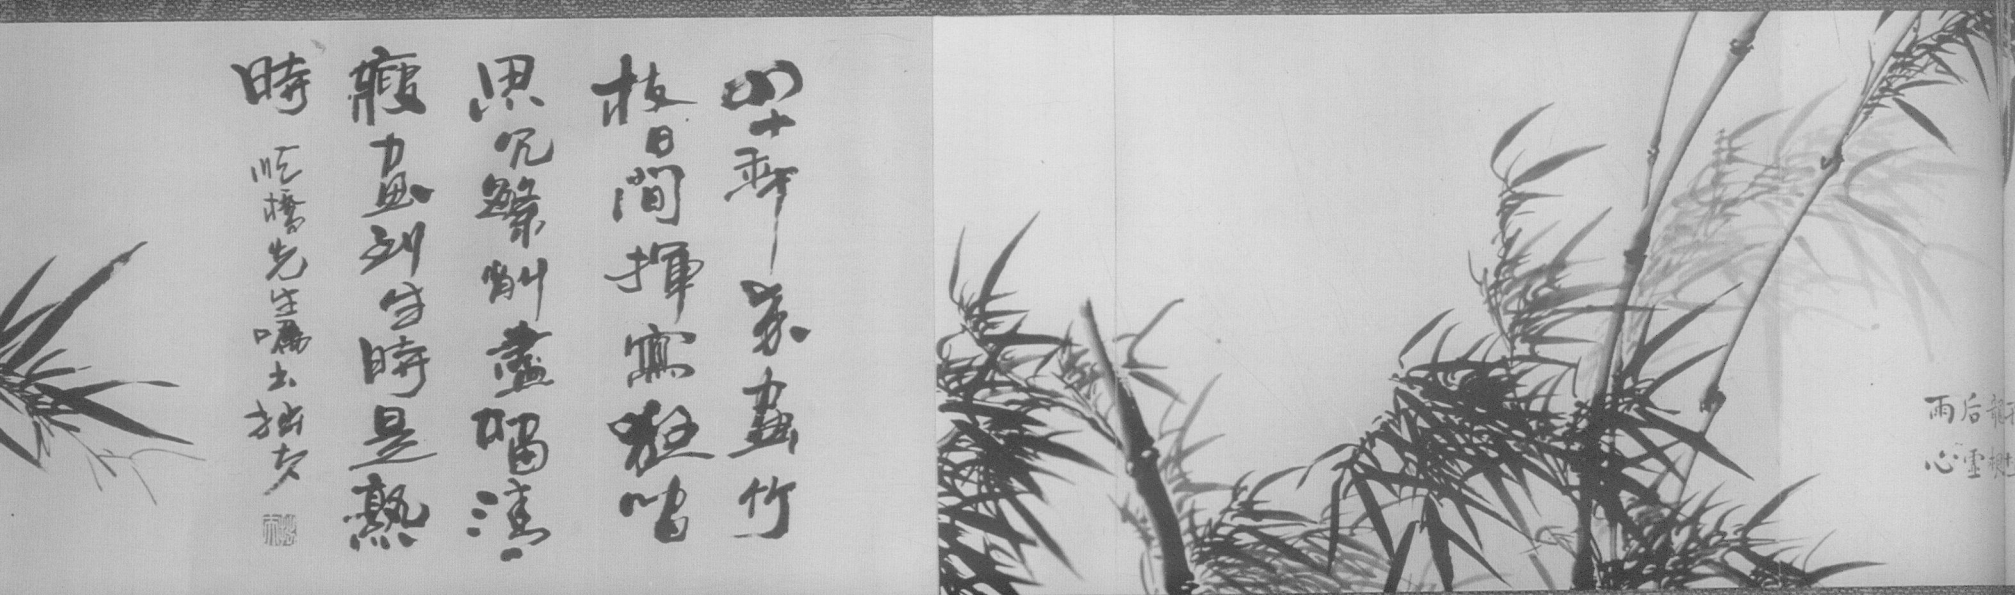 雨心
四十年来畫竹
枝日間揮寫夜间
思冗繁削盡留清
瘦畫到生時是熟
時
順橋先生囑书拙夫